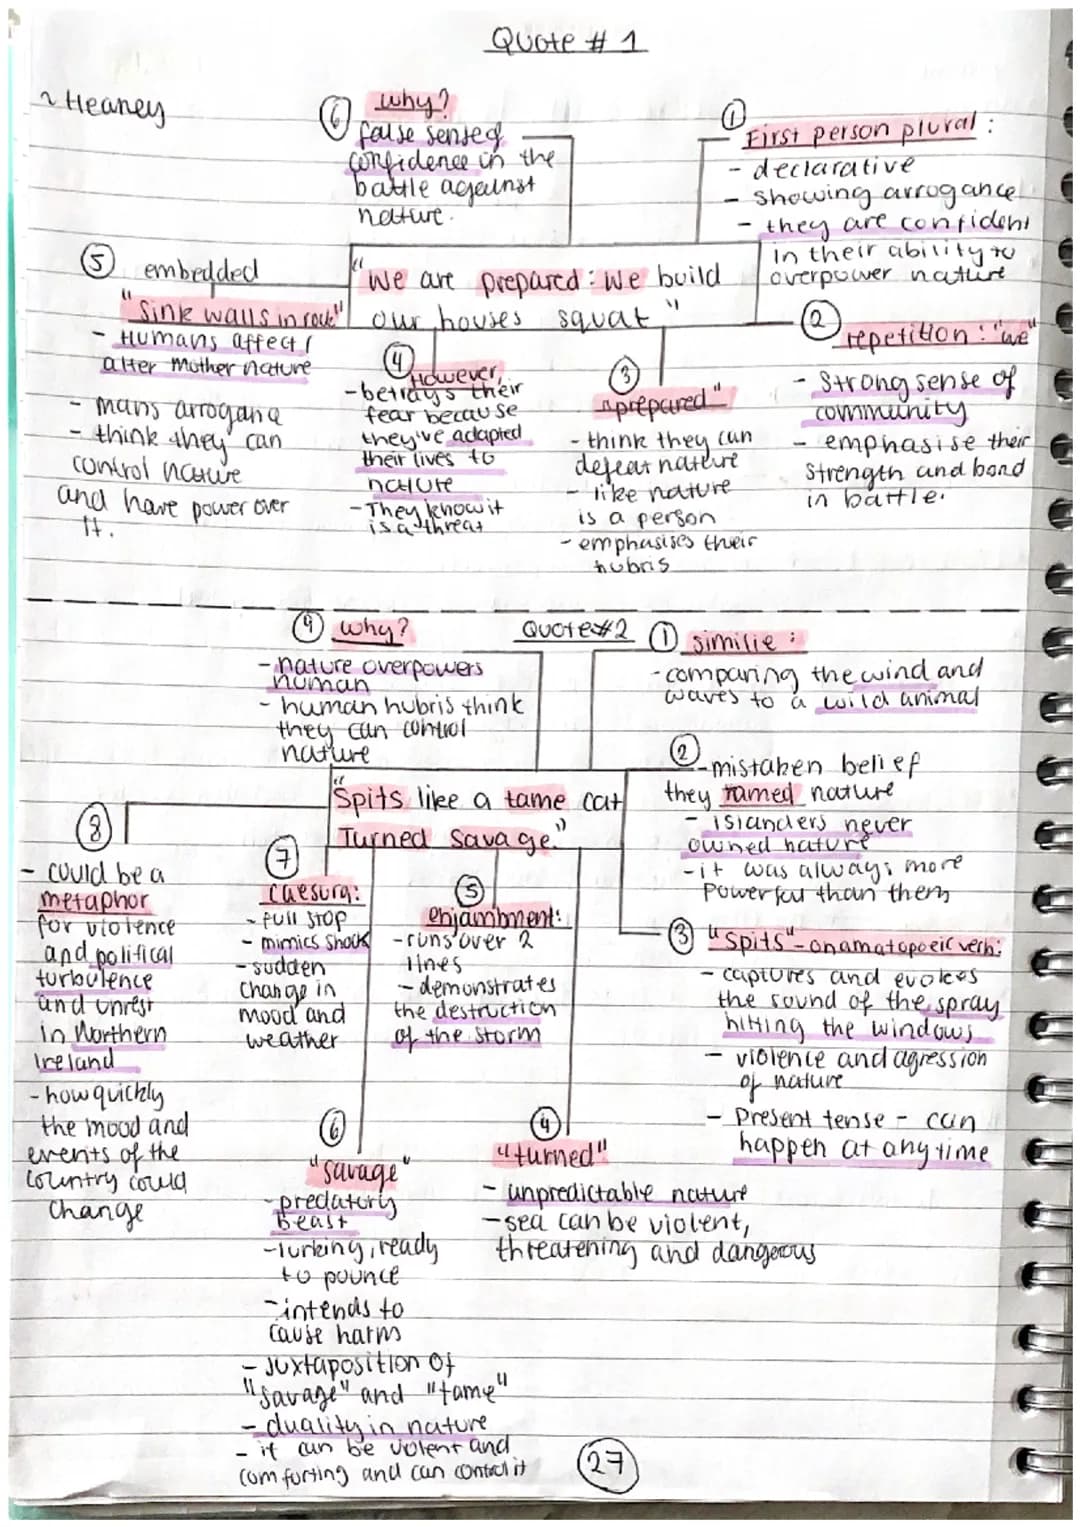 Quote # 1
~ Heaney
⑥ why?
false sense of
confidence in the
battle against
nature.
① First person plural :
- declarative
- showing arrogance
- they are confident
in their ability to
overpower nature
⑤ embedded
"Sink walls in rock"
- Humans affect /
alter Mother nature
- mans arrogance
- think they can
control nature
and have power over
it.
"We are prepared: We build
our houses squat"
② repetition : "we"
- Strong sense of
community
- emphasise their
strength and bond
in battle.
④ However,
- betrays their
fear because
they've adapted
their lives to
nature
- They know it
is a threat
③ "prepared"
- think they can
defeat nature
- like nature
is a person
- emphasises their
hubris
Quote #2
⑨ why?
- nature overpowers
human
- human hubris think
they can control
nature
① similie :
- comparing the wind and
waves to a wild animal
② - mistaken belief
they tamed nature
- islanders never
owned nature
- it was always more
powerful than them
"Spits like a tame cat
Turned Savage."
⑧
- could be a
metaphor
for violence
and political
turbulence
and unrest
in Northern
Ireland
- how quickly
the mood and
events of the
country could
change
⑦
caesura:
- full stop
- mimics shock
- sudden
change in
mood and
weather
⑤
enjambment:
- runs over 2
lines
- demonstrates
the destruction
of the storm
③ "Spits" - onamatopoeic verb:
- captures and evokes
the sound of the spray
hitting the windows
- violence and agression
of nature
- Present tense - can
happen at any time
⑥
"savage"
- predatory
beast
- lurking, ready
to pounce
- intends to
cause harm
- Juxtaposition of
"savage" and "tame"
- duality in nature
- it can be violent and
comforting and can control it
④
"turned"
- unpredictable nature
- sea can be violent,
threatening and dangerous
27